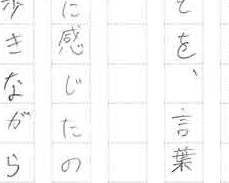 てを、言葉
に感じたの
歩きながら